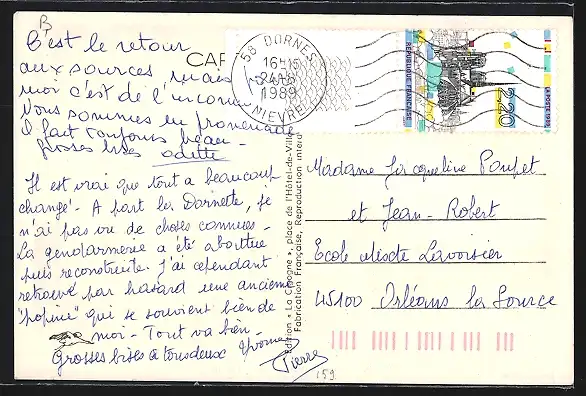 B
C'est le retour
aux sources mais
moi c'est de l'inconnu
Nous sommes en promenade
il fait toujours beau -
grosses bises odette
Il est vrai que tout a beaucoup
changé - A part la Dornette, je
n'ai pas vu de choses connues -
La gendarmerie a été abattue
puis reconstruite. J'ai cependant
retrouvé par hasard une ancienne
"copine" qui se souvient bien de
moi - Tout va bien -
Grosses bises à tous deux Yvonne
Pierre
CAR
58 DORNES
16H15
24-8
1989
NIEVRE
REPUBLIQUE FRANÇAISE
2,20
LA POSTE 1989
édition « La Cigogne », place de l'Hôtel-de-Ville
Fabrication Française, Reproduction interd
Madame Jacqueline Poupet
et Jean-Robert
Ecole mixte Lavoisier
45100 Orléans la Source
159